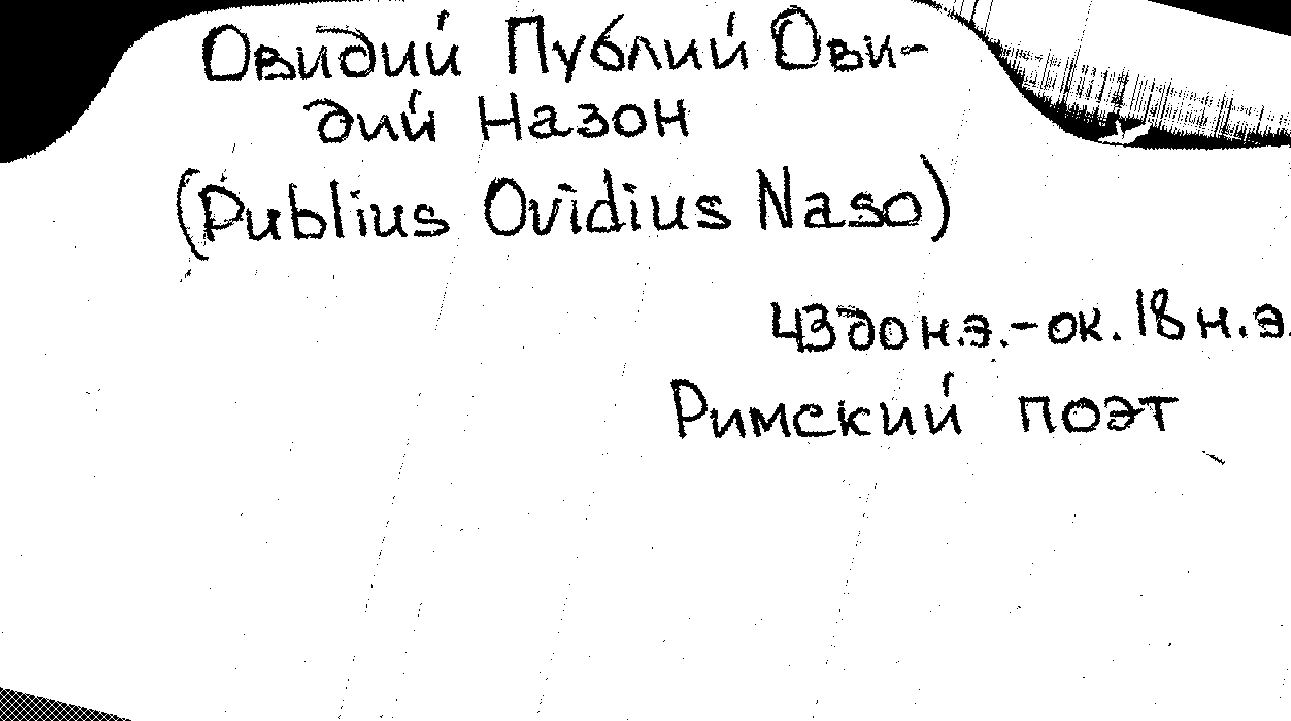 Овидий Публий Ови-
дий Назон
(Publius Ovidius Naso)
43 до н.э.-ок. 18 н.э.
Римский поэт